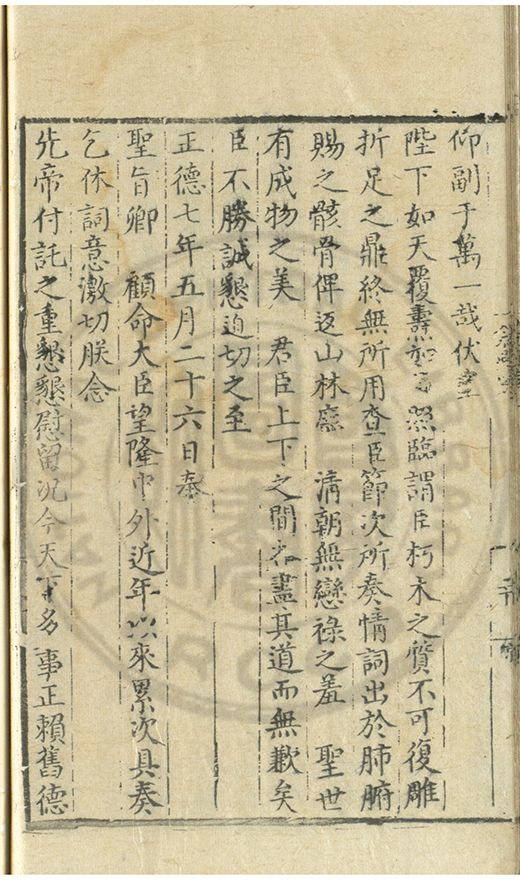 仰副于萬一哉伏望
陛下如天覆燾如日照臨謂臣朽木之質不可復雕
折足之鼎終無所用查臣節次所奏情詞出於肺腑
賜之骸骨俾返山林庶 清朝無戀祿之羞 聖世
有成物之美 君臣上下之間各盡其道而無歉矣
臣不勝誠懇迫切之至
正德七年五月二十六日奉
聖旨卿 顧命大臣望隆中外近年以來累次具奏
乞休詞意激切朕念
先帝付託之重懇懇慰留况今天下多事正賴舊德